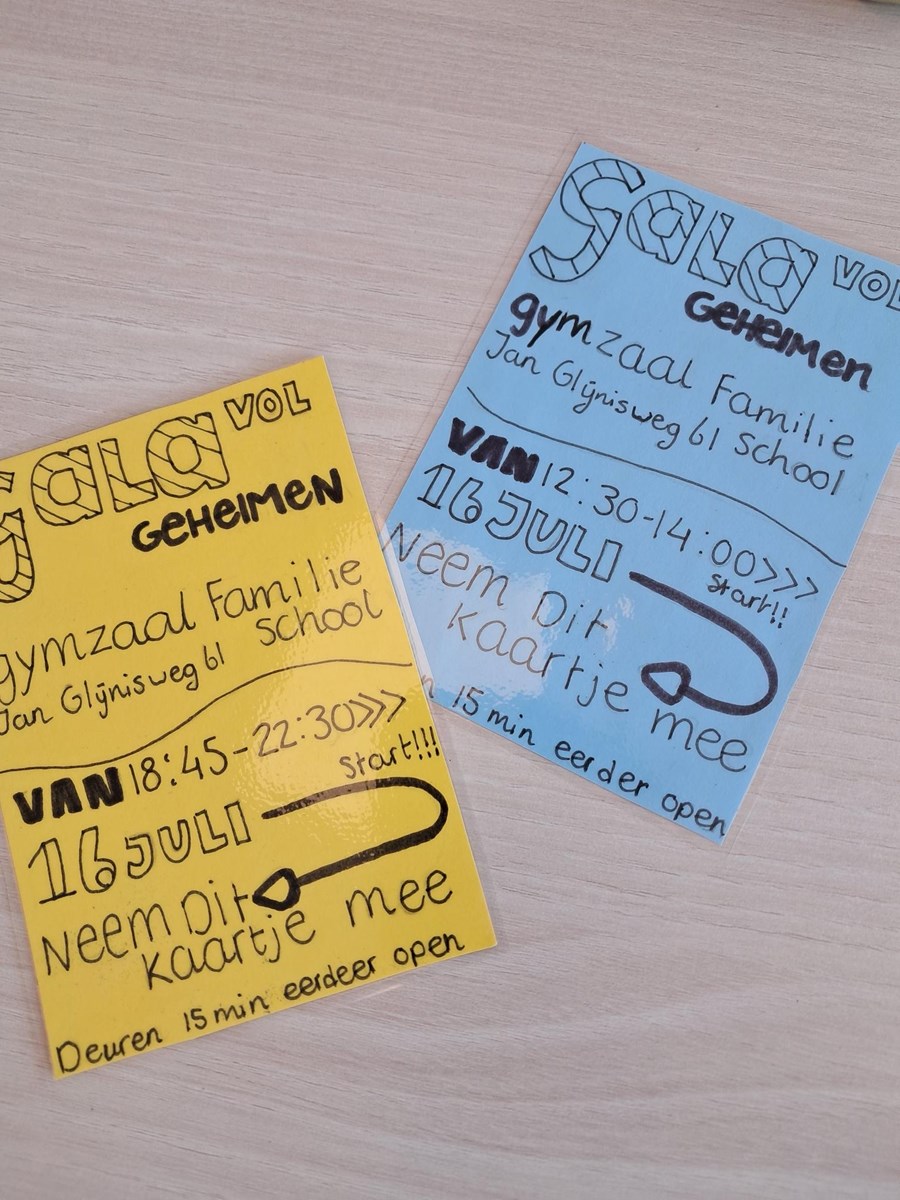 Gala VOL
GEHEIMEN
gymzaal Familie
Jan Glijnisweg 61 School
VAN 18:45-22:30>>>
Start!!!
16 JULI
Neem Dit
Kaartje mee
Deuren 15 min eerdeer open
Gala VOL
GEHEIMEN
gymzaal Familie
Jan Glijnisweg 61 School
VAN 12:30-14:00>>>
Start!!
16 JULI
Neem Dit
Kaartje mee
15 min eerder open